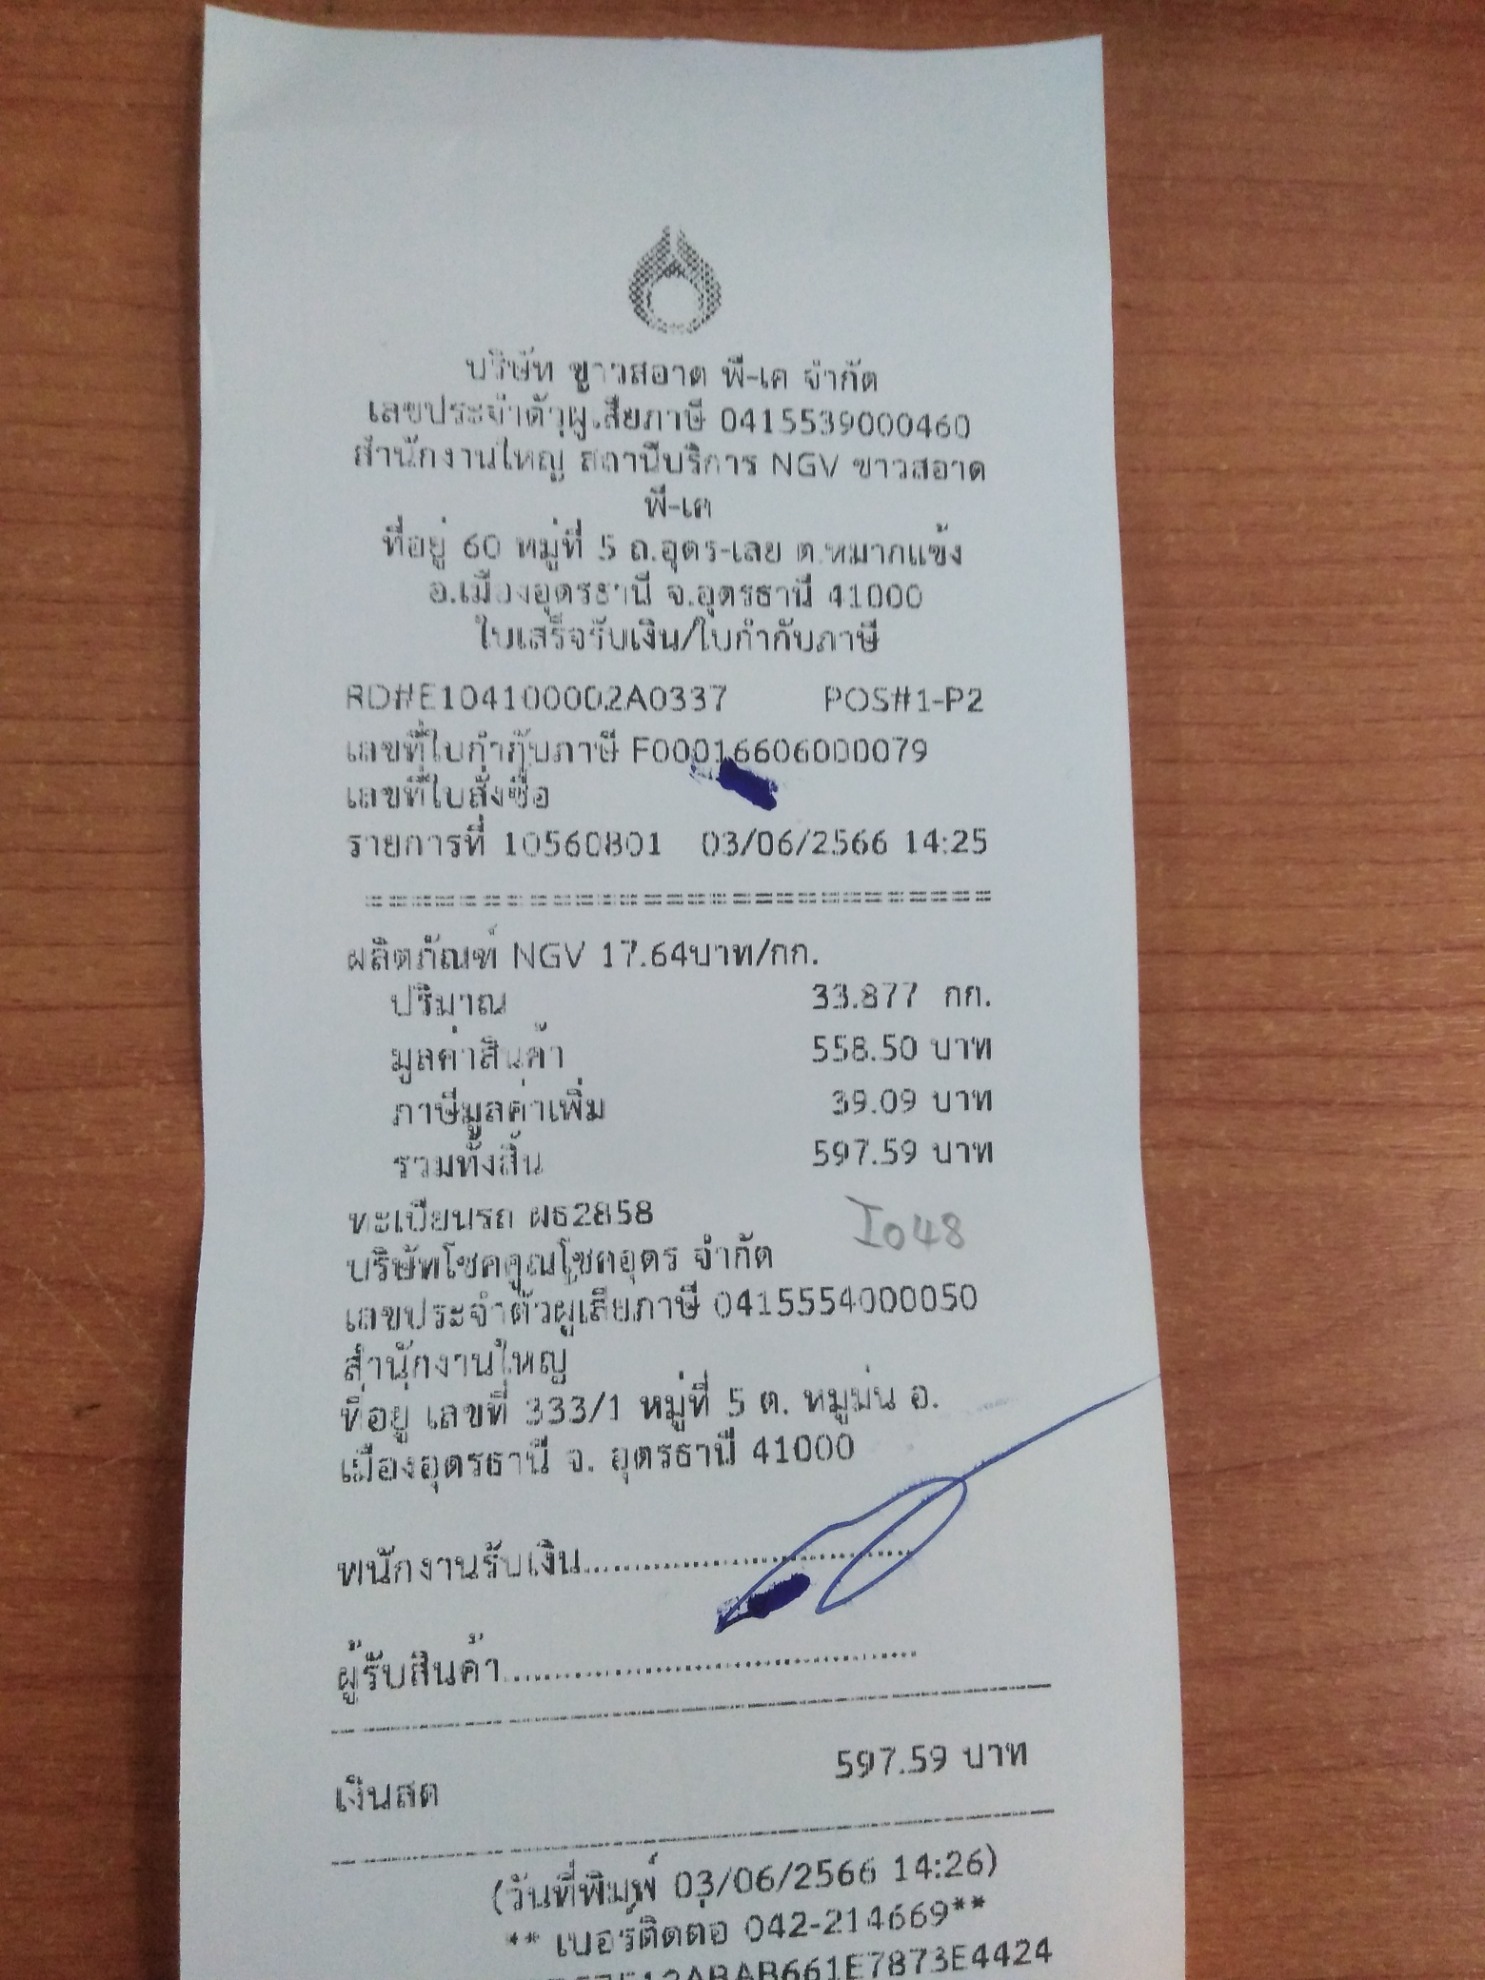 บริษัท ขาวสอาด พี-เค จำกัด
เลขประจำตัวผู้เสียภาษี 0415539000460
สำนักงานใหญ่ สถานีบริการ NGV ขาวสอาด
พี-เค
ที่อยู่ 60 หมู่ที่ 5 ถ.อุดร-เลย ต.หมากแข้ง
อ.เมืองอุดรธานี จ.อุดรธานี 41000
ใบเสร็จรับเงิน/ใบกำกับภาษี
RD#E104100002A0337 POS#1-P2
เลขที่ใบกำกับภาษี F00016606000079
เลขที่ใบสั่งซื้อ
รายการที่ 10560801 03/06/2566 14:25
ผลิตภัณฑ์ NGV 17.64บาท/กก.
ปริมาณ 33.877 กก.
มูลค่าสินค้า 558.50 บาท
ภาษีมูลค่าเพิ่ม 39.09 บาท
รวมทั้งสิ้น 597.59 บาท
ทะเบียนรถ ผธ2858 I048
บริษัทโชคคูณโชคอุดร จำกัด
เลขประจำตัวผู้เสียภาษี 0415554000050
สำนักงานใหญ่
ที่อยู่ เลขที่ 333/1 หมู่ที่ 5 ต. หมูม่น อ.
เมืองอุดรธานี จ. อุดรธานี 41000
พนักงานรับเงิน........................................
ผู้รับสินค้า........................................
เงินสด 597.59 บาท
(วันที่พิมพ์ 03/06/2566 14:26)
** เบอร์ติดต่อ 042-214669**